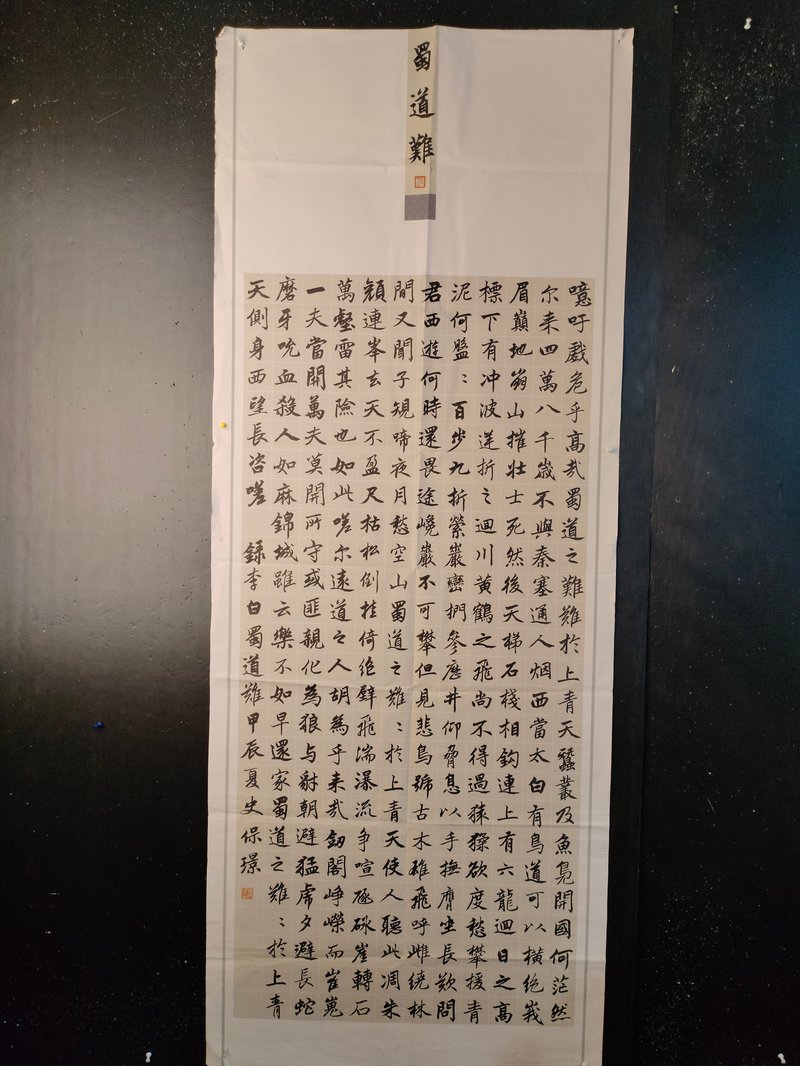 蜀道難
噫吁戲危乎高哉蜀道之難難於上青天蠶叢及魚鳧開國何茫然
尔来四萬八千歲不與秦塞通人烟西當太白有鳥道可以橫絕峩
眉巔地崩山摧壯士死然後天梯石棧相鈎連上有六龍迴日之高
標下有冲波逆折之迴川黃鶴之飛尚不得過猿猱欲度愁攀援青
泥何盤〻百步九折縈巖巒捫參歷井仰脅息以手撫膺坐長歎問
君西遊何時還畏途巉巖不可攀但見悲鳥號古木雄飛呼雌繞林
間又聞子規啼夜月愁空山蜀道之難〻於上青天使人聽此凋朱
顏連峯去天不盈尺枯松倒挂倚絕壁飛湍瀑流爭喧豗砯崖轉石
萬壑雷其險也如此嗟尔遠道之人胡為乎来哉劒閣崢嶸而崔嵬
一夫當關萬夫莫開所守或匪親化為狼与豺朝避猛虎夕避長蛇
磨牙吮血殺人如麻錦城雖云樂不如早還家蜀道之難〻於上青
天側身西望長咨嗟 録李白蜀道難甲辰夏史保璟